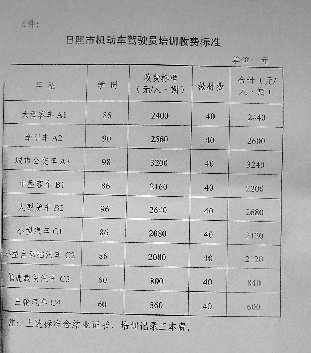 附件：
日照市机动车驾驶员培训收费标准
单位：元
车型 学时 收费标准（元/人·期） 教材费 合计（元/人·期）
大型客车 A1 86 2400 40 2440
牵引车 A2 90 2560 40 2600
城市公交车 A3 98 3200 40 3240
中型客车 B1 86 2160 40 2200
大型货车 B2 96 2640 40 2680
小型汽车 C1 86 2080 40 2120
小型自动挡汽车 C2 86 2080 40 2120
低速载货汽车 C3 60 800 40 840
三轮汽车 C4 60 560 40 600
注：上述标准含结业证书、培训记录工本费。